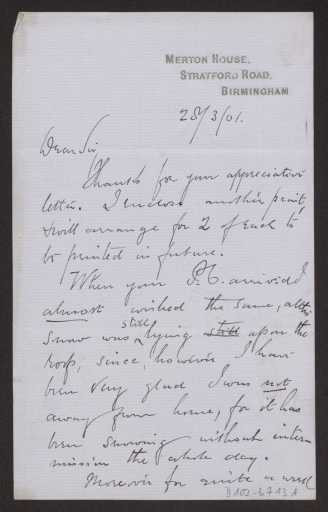 MERTON HOUSE,
STRATFORD ROAD,
BIRMINGHAM
28/3/01.
Dear Sir
Thanks for your appreciative
letter. I enclose another print,
& will arrange for 2 of each to
be printed in future.
When your P.C. arrived I
almost wished the same, altho
snow was still lying still upon the
roofs, since, however I have
been very glad I was not
away from home, for it has
been snowing without inter-
mission the whole day.
Moreover for quite a week